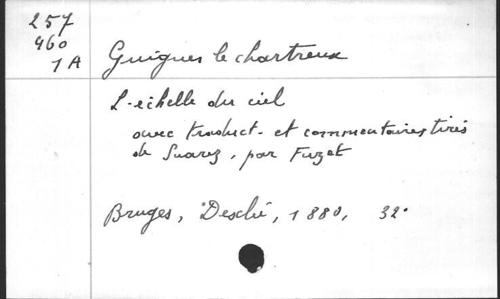 257
460
1 A
Guigues le chartreux
L'échelle du ciel
avec traduct. et commentaires tirés
de Suarez, par Fuzet
Bruges, Desclé, 1880, 32°